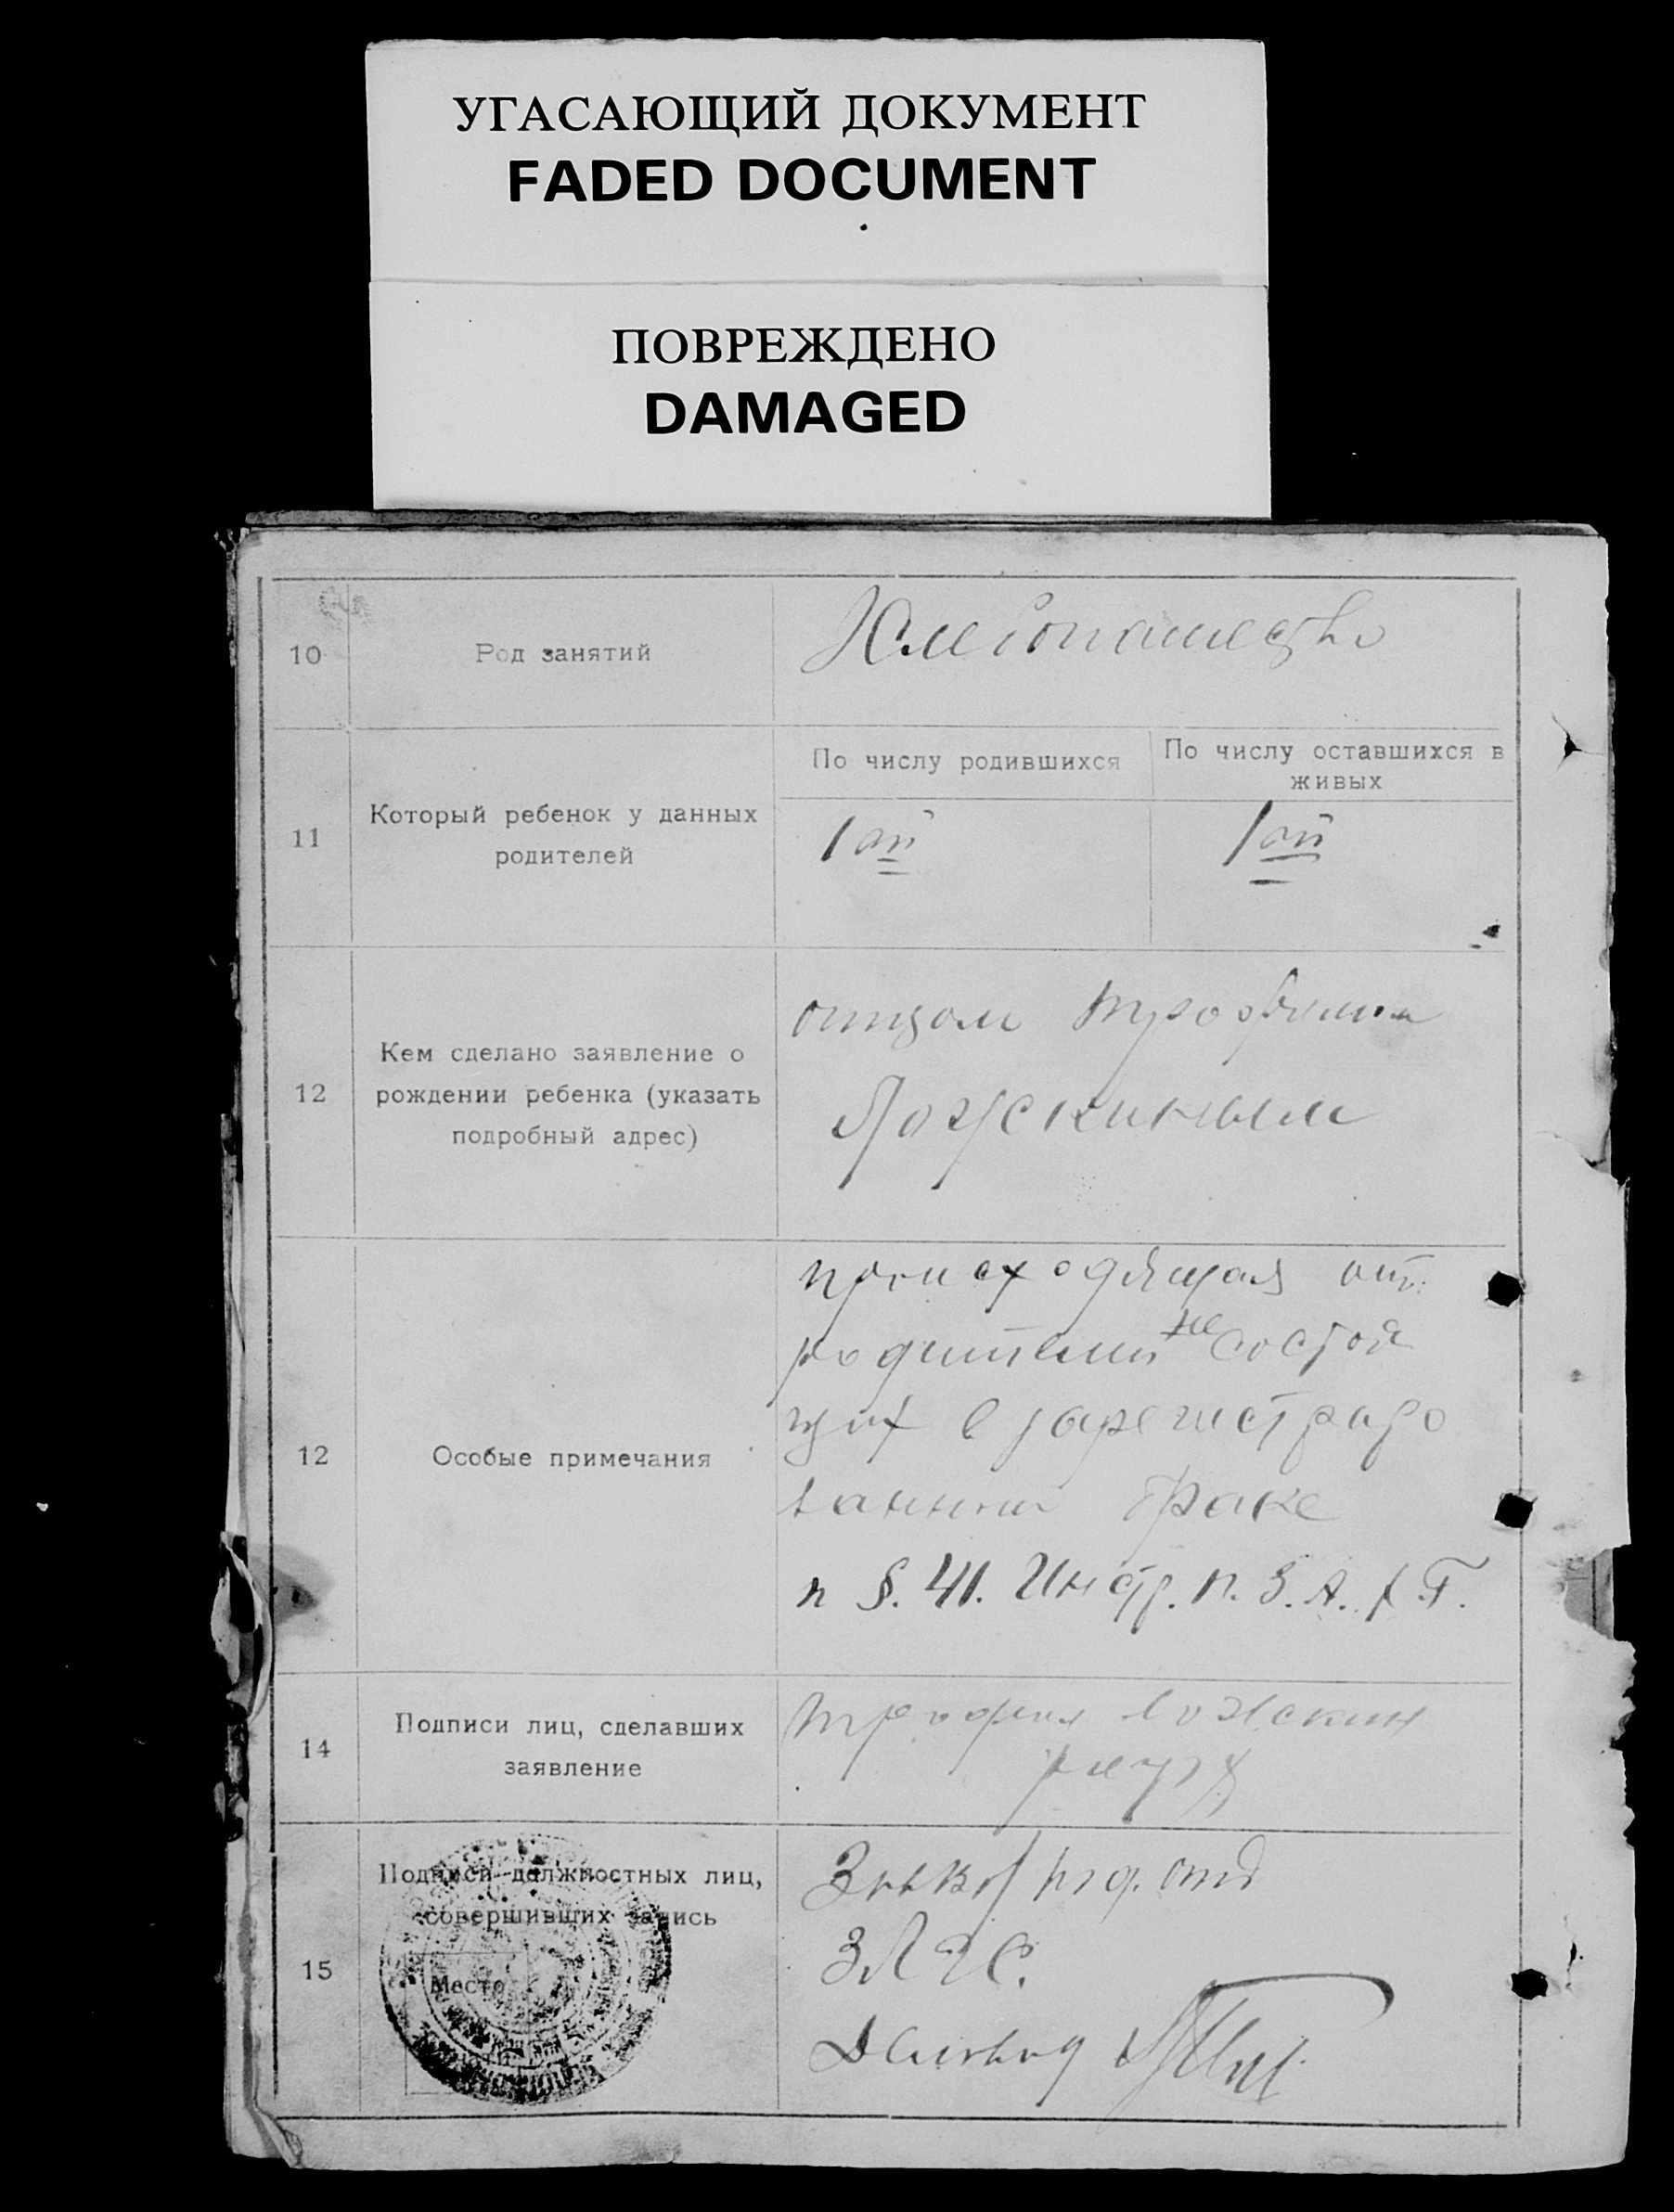 УГАСАЮЩИЙ ДОКУМЕНТ
FADED DOCUMENT
ПОВРЕЖДЕНО
DAMAGED
10
Род занятий
Хлебопашество
11
Который ребенок у данных
родителей
По числу родившихся
По числу оставшихся в
живых
1 ый
1 ый
12
Кем сделано заявление о
рождении ребенка (указать
подробный адрес)
отцом Трофимом
12
Особые примечания
происходящая от
родителей не состоя
щих в зарегистриро
ванном браке
п §. 41. Инстр. п. З. А. Г.
14
Подписи лиц, сделавших
заявление
Трофим
15
Подписи должностных лиц,
совершивших запись
Место
отд
ЗАГС.